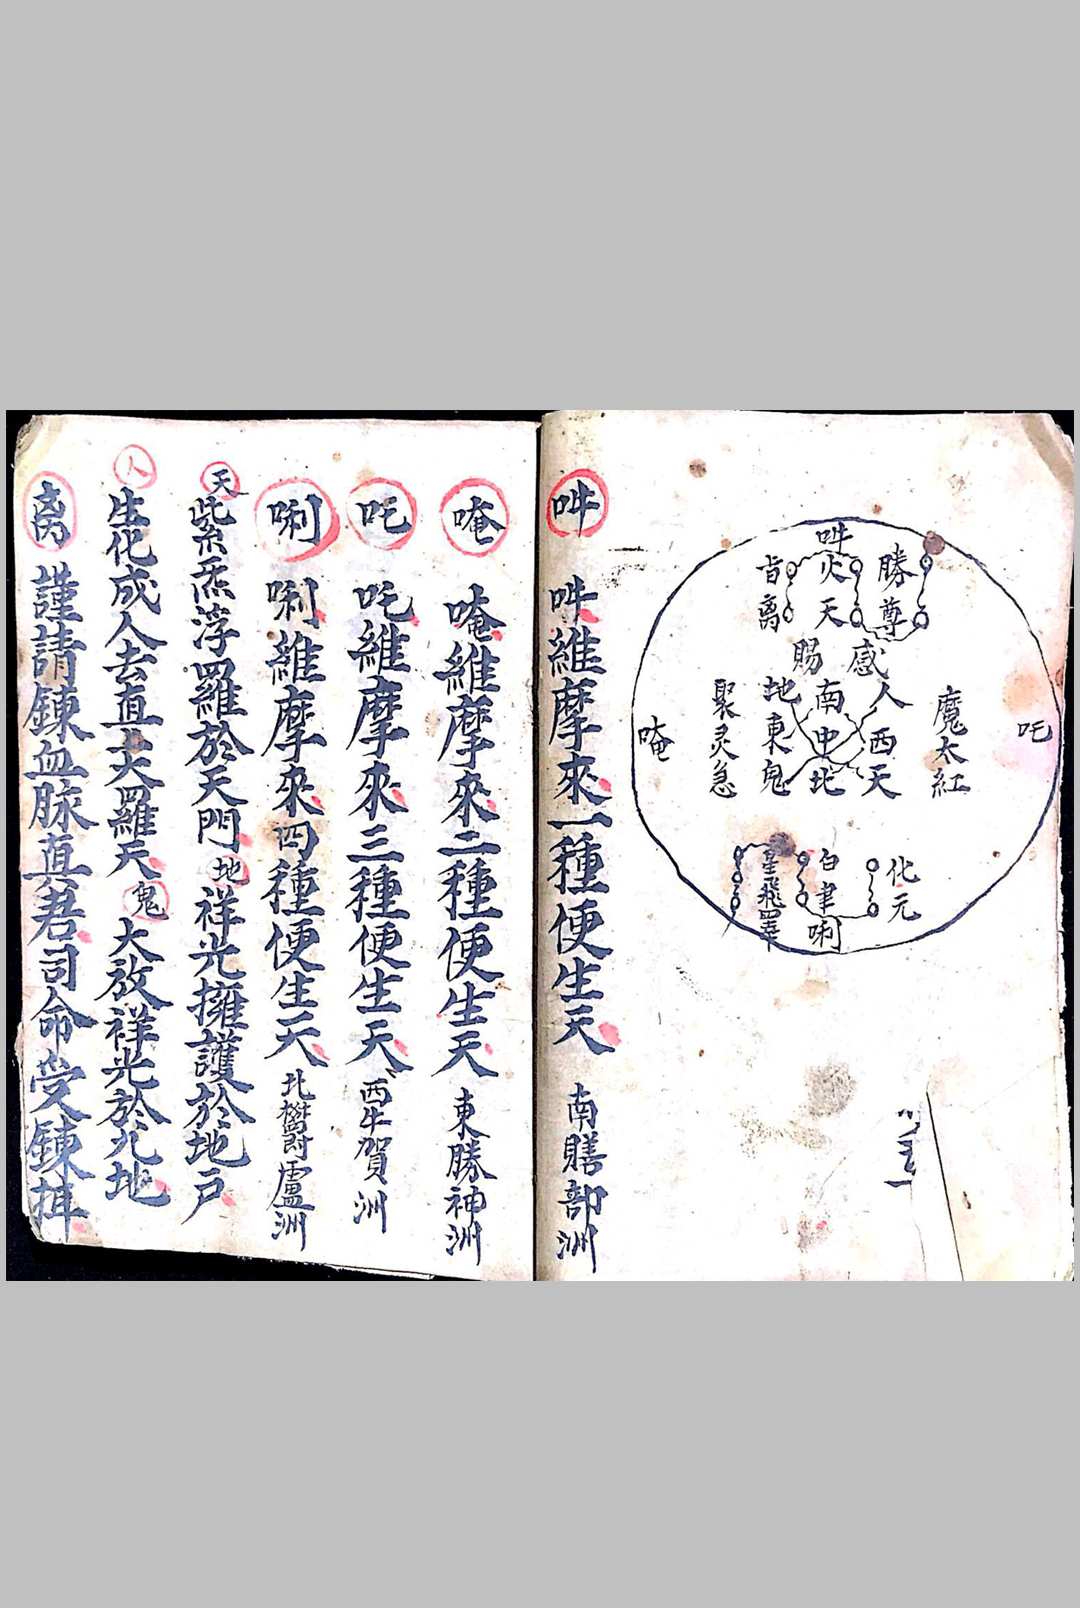 吽
火天
勝尊
旨离
賜
感
地
南
人
東
中
西
鬼
北
天
聚灵急
魔太紅
唵
吒
白聿
化元
唎
吽 吽維摩來一種便生天 南膳部洲
唵 唵維摩來二種便生天 東勝神洲
吒 吒維摩來三種便生天 西牛賀洲
唎 唎維摩來四種便生天 北欝盧洲
天 紫炁浮羅於天門 地 祥光擁護於地戸
人 生化成人去直上大羅天 鬼 大放祥光於九地
离 謹請鍊血脉真君司命受鍊